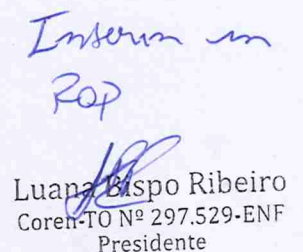 Inserir em
ROP
Luana Bispo Ribeiro
Coren-TO Nº 297.529-ENF
Presidente